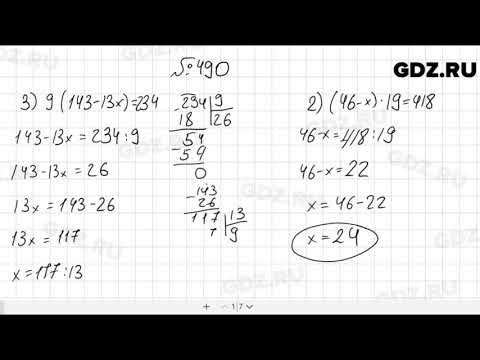 №490
GDZ.RU
3) 9(143-13x)=234
143-13x = 234:9
143-13x = 26
13x = 143-26
13x = 117
x = 117:13
234 | 9
18 | 26
54
- 54
0
- 143
26
117 | 13
9
2) (46-x)·19=418
46-x=418:19
46-x = 22
x = 46-22
x = 24
1 7